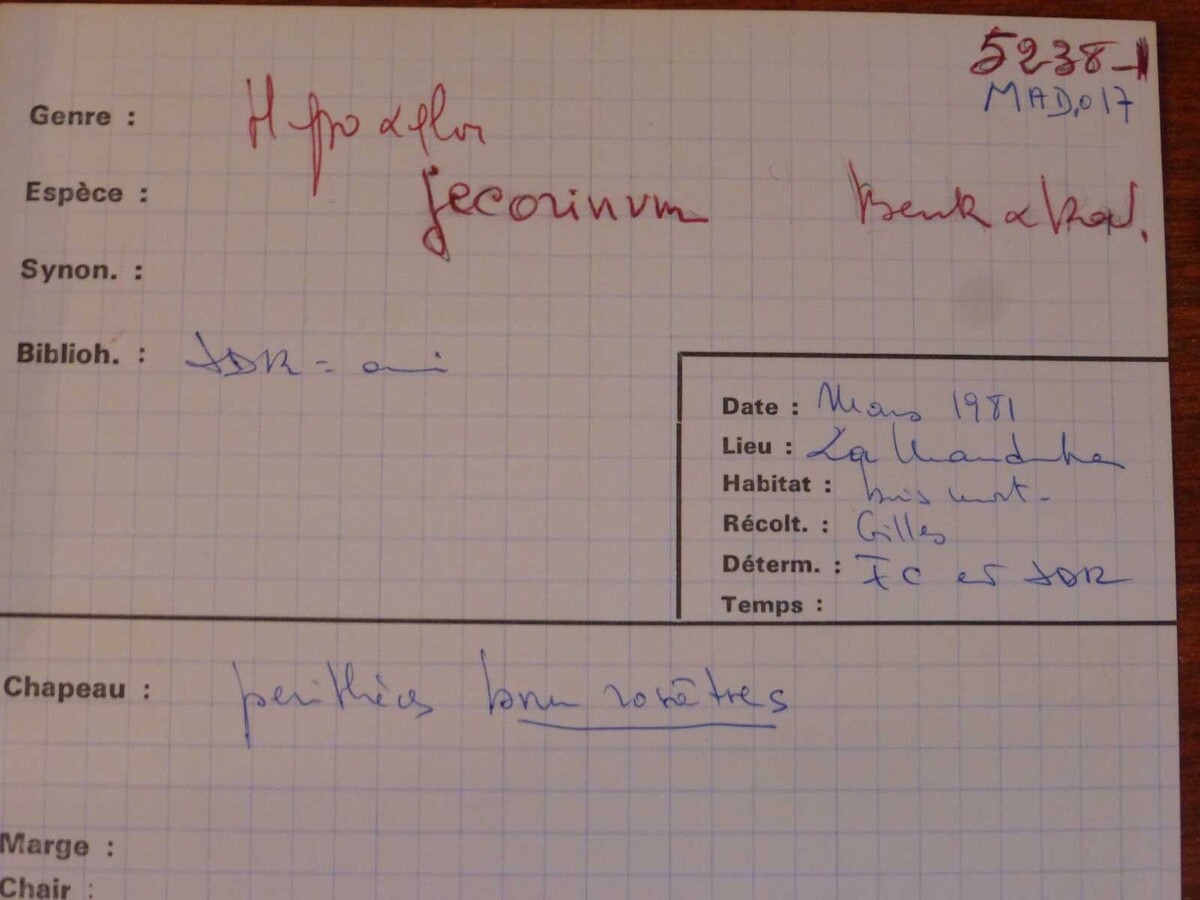 5238-1
MAD.017
Genre :
Espèce : jecorinum
Synon. :
Biblioh. : JDR =
Date : Mars 1981
Lieu : La
Habitat : bois mort -
Récolt. : Gilles
Déterm. : FC et JDR
Temps :
Chapeau : perithèces brun rosâtres
Marge :
Chair :